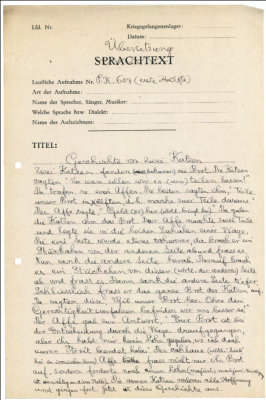 Lfd. Nr.
Kriegsgefangenenlager:
Datum:
Übersetzung
SPRACHTEXT
Lautliche Aufnahme Nr. P.K. 607 (erste Hälfte)
Art der Aufnahme:
Name der Sprecher, Sänger, Musiker:
Welche Sprache bzw. Dialekt:
Name des Aufzeichners:
TITEL:
Geschichte von zwei Katzen
Zwei Katzen fanden ein Brot. Die Katzen
sagten: "Von wem sollen wir es (uns) teilen lassen?"
Da trafen sie zwei Affen. Die beiden sagten ihm: "Teile
unser Brot in Hälften, d.h. mache zwei Teile daraus."
Der Affe sagte: "Gebt her." Da gaben
die Katzen ihm das Brot. Der Affe machte zwei Teile
und legte sie in die beiden Schalen einer Wage.
Die eine Seite wurde etwas schwerer, da brach er ein
Stückchen von der anderen Seite ab und frass es.
Nun sank die andere Seite herab. Darauf brach
er ein Stückchen von dieser (wörtl. der anderen) Seite
ab und frass es. Dann sank die andere Seite tiefer.
Schliesslich frass er das ganze Brot der Katzen auf.
Sie sagten diesem: "Gib unser Brot her. Ohne dein
Gerechtigkeitsverfahren befinden wir uns besser so."
Der Affe gab zur Antwort: "Euer Brot ist bei
der Entscheidung durch die Wage draufgegangen,
aber ihr habt mir keinen Lohn gegeben, wo ich doch
euren Streit beendet habe.
Affe frass nicht nur ihr Brot
auf, sondern forderte noch einen Lohn
Die armen Katzen verloren alle Hoffnung
und gingen fort. Jetzt ist diese Geschichte aus.